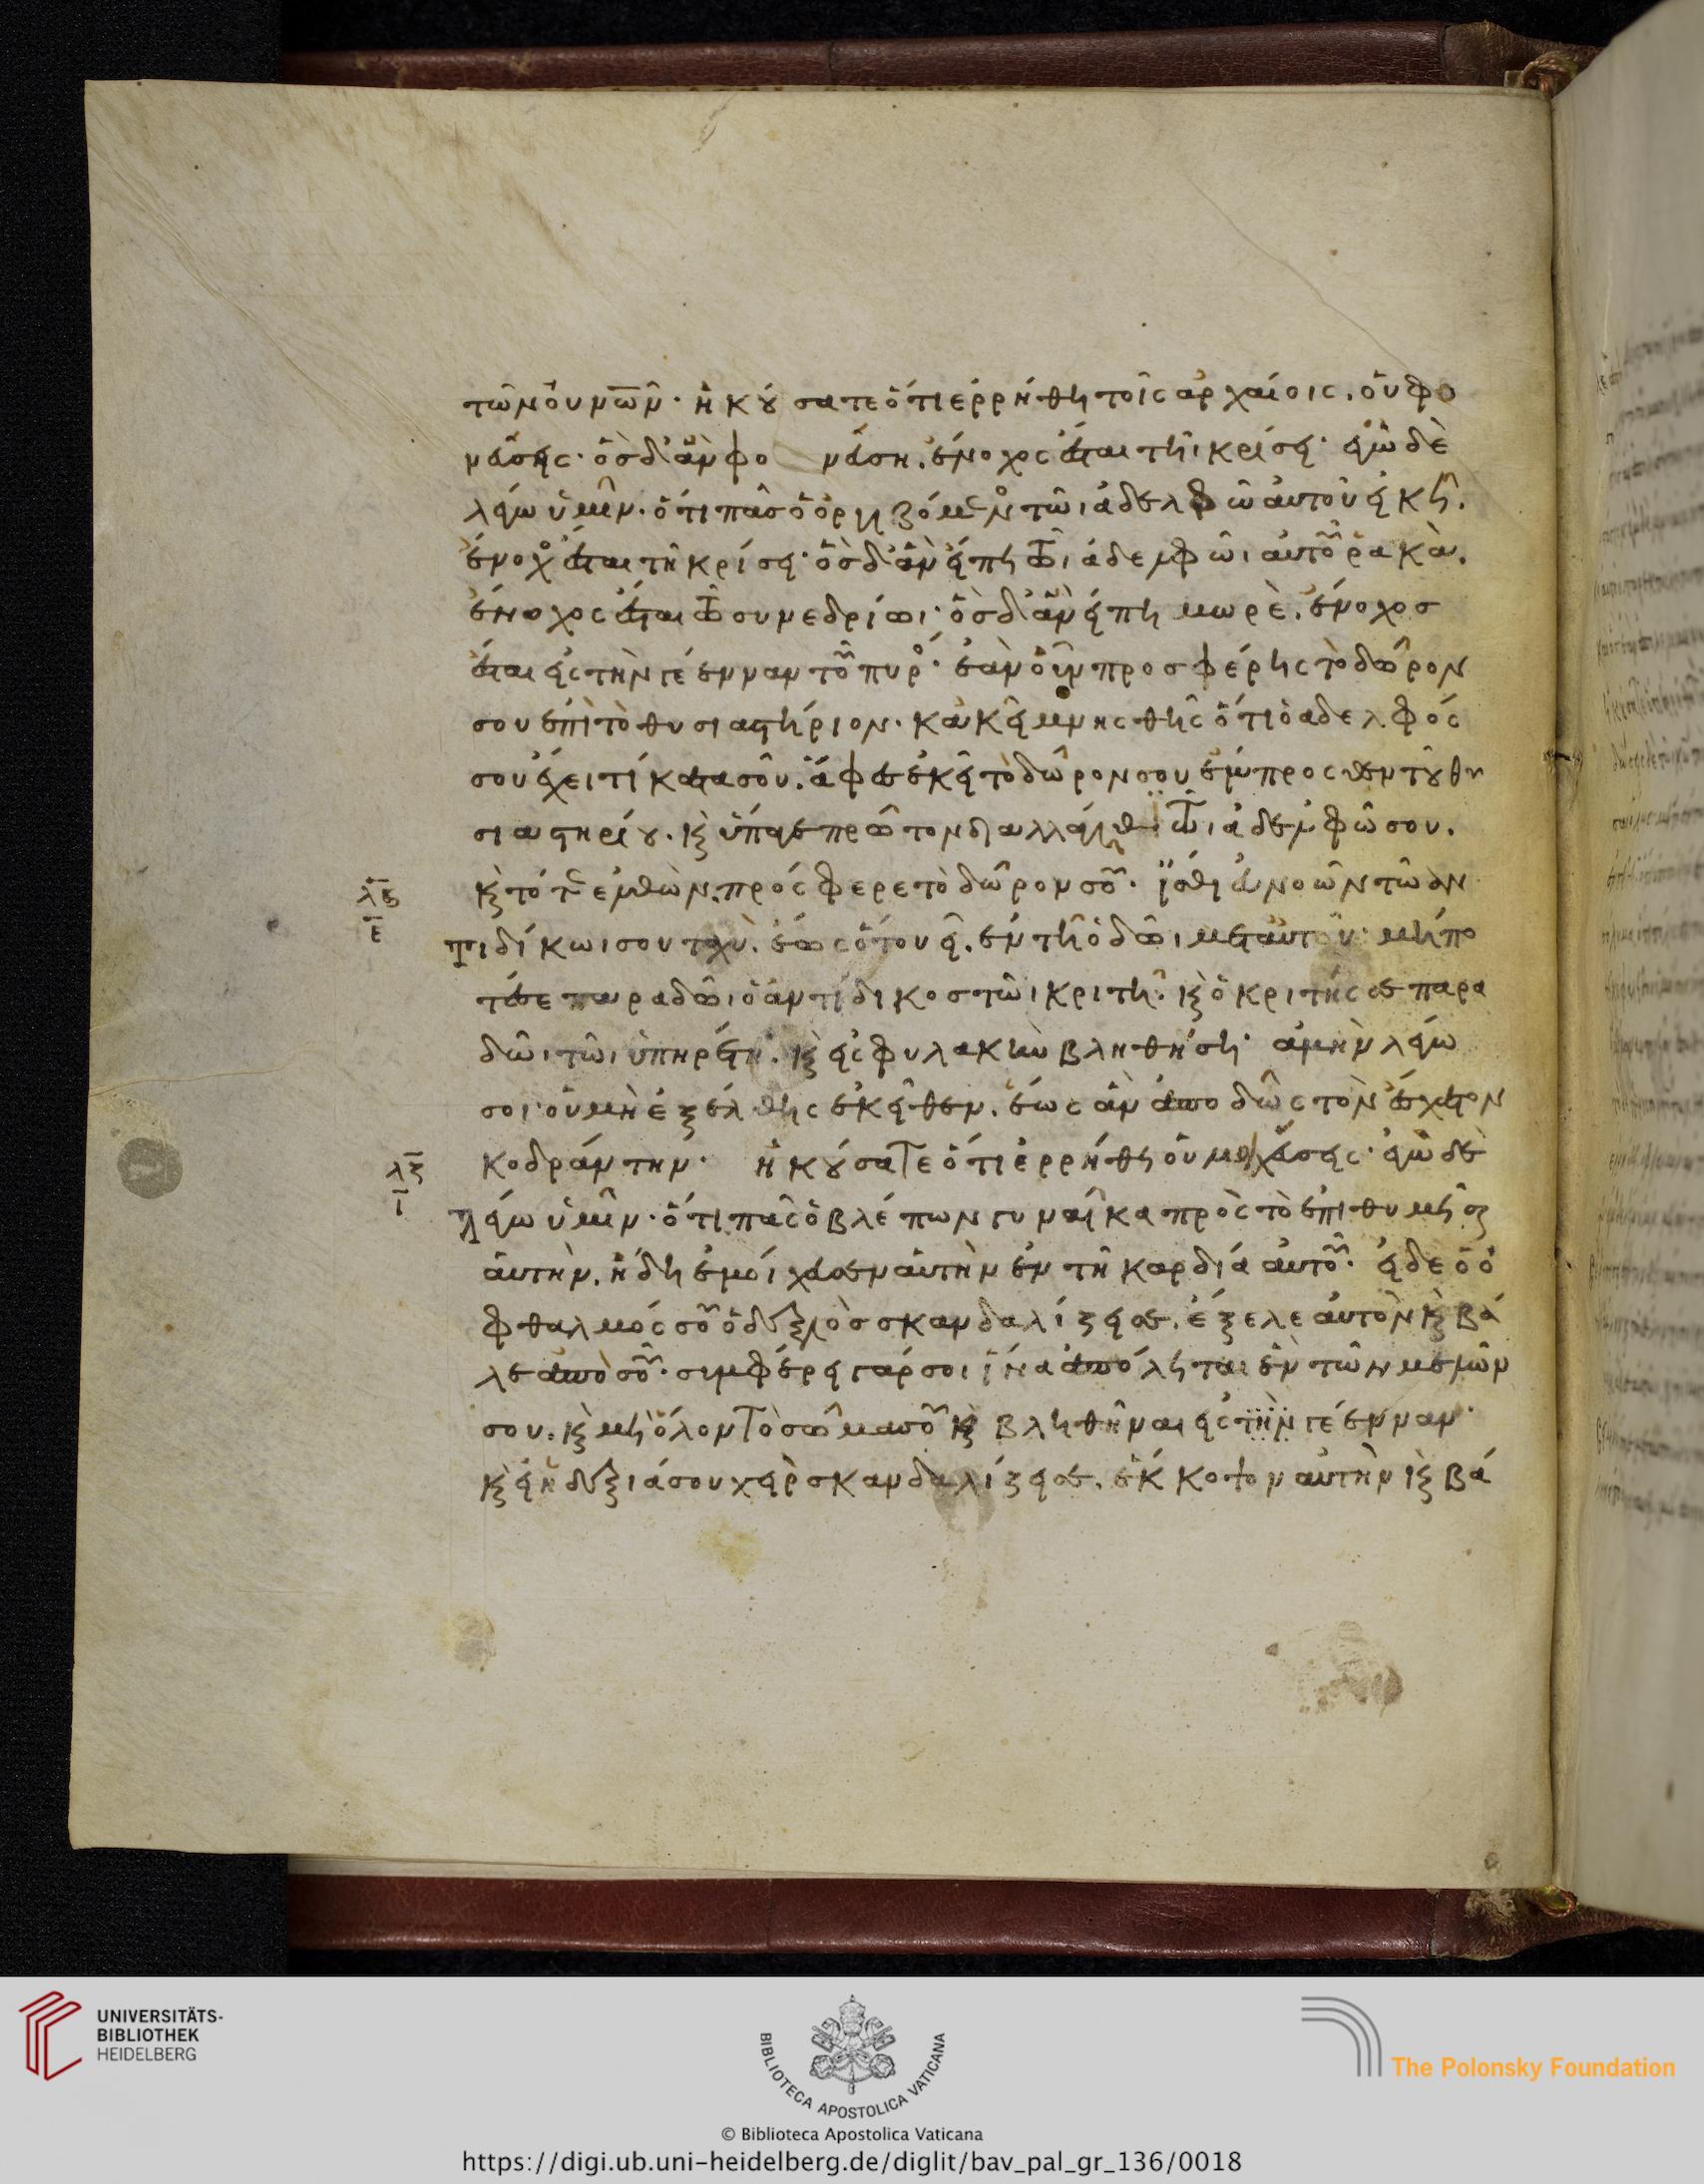 τῶν οὐνῶν· ἠκούσατε ὅτι ἐρρήθη τοῖς ἀρχαίοις. οὐ φο
νεύσεις· ὃς δ' ἂν φονεύση. ἔνοχος ἔσται τῆι κρίσει· ἐγὼ δὲ
λέγω ὑμῖν. ὅτι πᾶσ ὁ ὀργιζόμενος τῶι ἀδελφῶ αὐτοῦ εἰκῆ.
ἔνοχος ἔσται τῆ κρίσει· ὃς δ' ἂν εἴπη τῶι ἀδελφῶι αὐτοῦ ῥακὰ.
ἔνοχος ἔσται τῶ συνεδρίωι· ὃς δ' ἂν εἴπη μωρὲ. ἔνοχοσ
ἔσται εἰς τὴν γέενναν τοῦ πυρός· ἐὰν οὖν προσφέρης τὸ δῶρον
σου ἐπὶ τὸ θυσιαστήριον. κἀκεῖ μνησθῆς ὅτι ὁ ἀδελφός
σου ἔχει τί κατὰ σοῦ. ἄφες ἐκεῖ τὸ δῶρον σου ἔμπροσθεν τοῦ θυ
σιαστηρίου. κὶ ὕπαγε πρῶτον διαλλάγηθι τῶι ἀδελφῶ σου.
κὶ τότε ἐλθὼν. πρόσφερε τὸ δῶρον σου. ἴσθι εὐνοῶν τῶ ἀν
τιδίκωι σου ταχὺ. ἕως ὅτου εἶ. ἐν τῆ ὁδῶι μετ' αὐτοῦ· μήπο
τέ σε παραδῶι ὁ ἀντίδικος τῶι κριτῆ. κὶ ὁ κριτής σε παρα
δῶι τῶι ὑπηρέτη. κὶ εἰς φυλακὴν βληθήση· ἀμὴν λέγω
σοι· οὐ μὴ ἐξέλθης ἐκεῖθεν. ἕως ἂν ἀποδῶς τὸν ἔσχατον
κοδράντην· ἠκούσατε ὅτι ἐρρήθη οὐ μοιχεύσεις· ἐγὼ δὲ
λέγω ὑμῖν. ὅτι πᾶς ὁ βλέπων γυναῖκα πρὸς τὸ ἐπιθυμῆσαι
αὐτὴν. ἤδη ἐμοίχευσεν αὐτὴν ἐν τῆ καρδία αὐτοῦ· εἰ δὲ ὁ ὀ
φθαλμός σοῦ ὁ δεξιὸσ σκανδαλίζει σε. ἔξελε αὐτὸν κὶ βά
λε ἀπὸ σοῦ· συμφέρει γάρ σοι ἵνα ἀπόληται ἓν τῶν μελῶν
σου. κὶ μὴ ὅλον τὸ σῶμα σοῦ βληθῆναι εἰς τὴν γέενναν·
κὶ εἰ ἡ δεξιά σου χεὶρ σκανδαλίζει σε. ἔκκοψον αὐτὴν κὶ βά
UNIVERSITÄTS-
BIBLIOTHEK
HEIDELBERG
BIBLIOTECA APOSTOLICA VATICANA
The Polonsky Foundation
© Biblioteca Apostolica Vaticana
https://digi.ub.uni-heidelberg.de/diglit/bav_pal_gr_136/0018